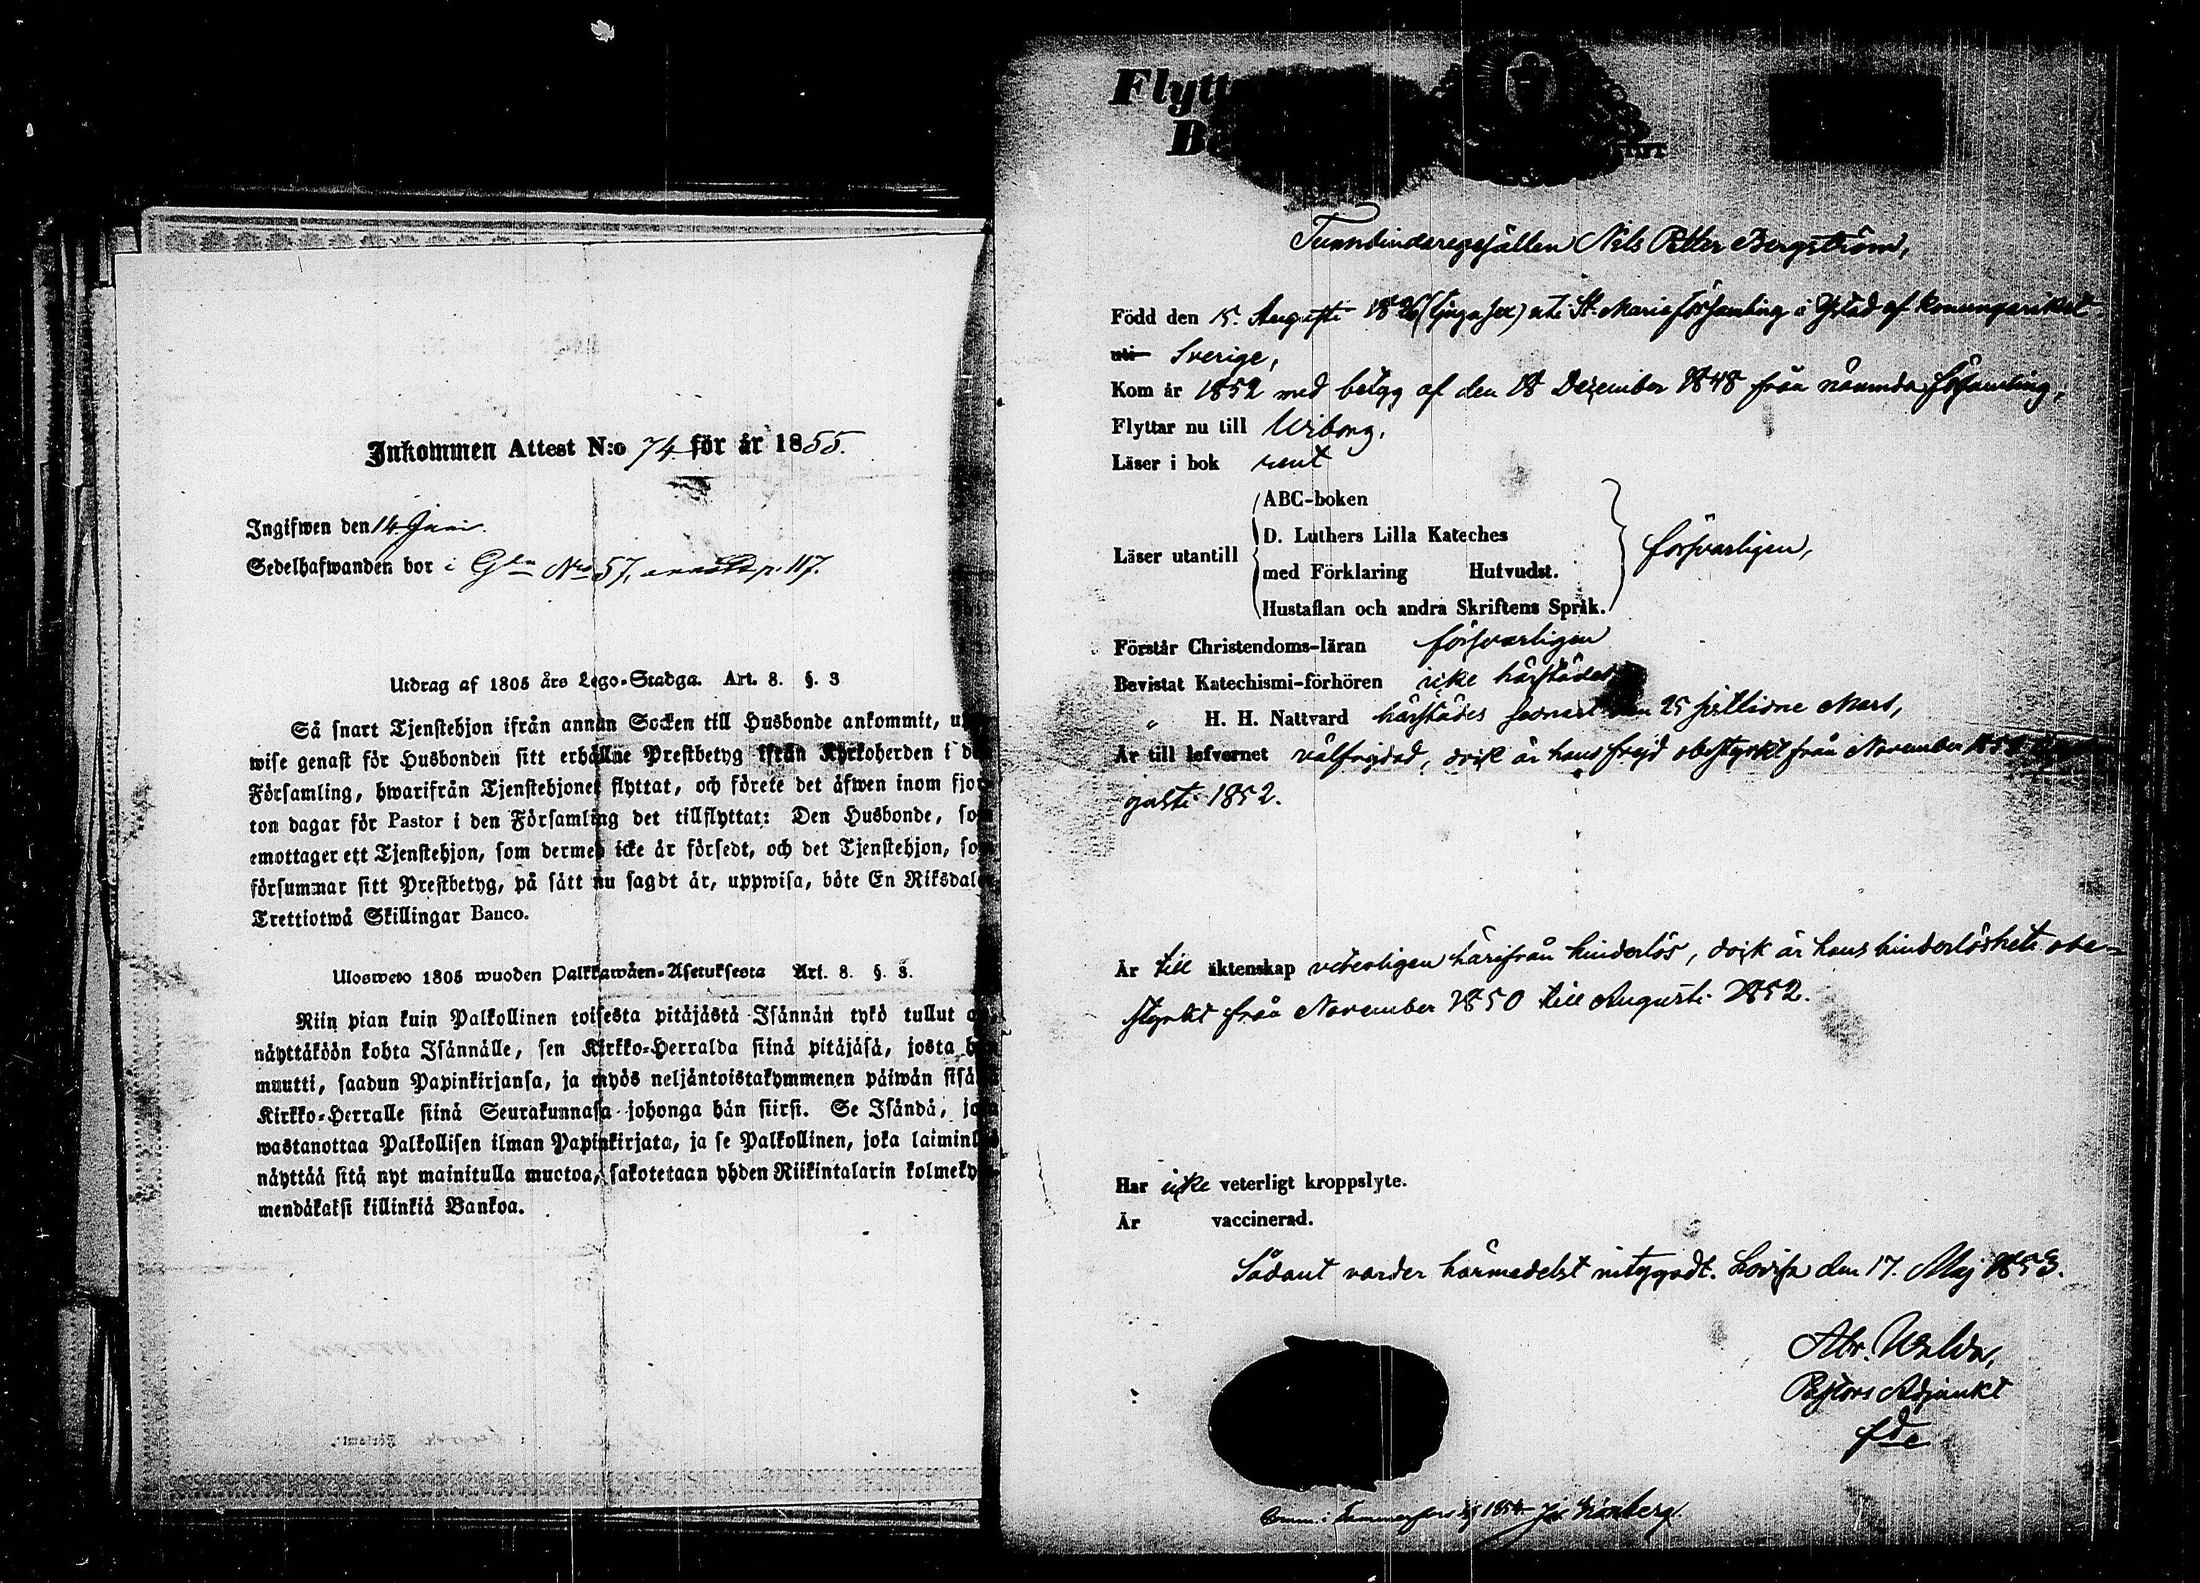 Inkommen Attest N:o 74 för år 1855.
Ingifwen den 14 Juni.
Sedelhafwanden bor i Gln No 57, p. 117.
Utdrag af 1805 års Lego-Stadga. Art. 8. §. 3
Så snart Tjenstehjon ifrån annan Socken till Husbonde ankommit, upp
wise genast för Husbonden sitt erhållne Prestbetyg ifrån Kyrkoherden i d
Församling, hwarifrån Tjenstehjonet flyttat, och förete det äfwen inom fjor
ton dagar för Pastor i den Församling det tillflyttat: Den Husbonde, so
emottager ett Tjenstehjon, som dermed icke är försedt, och det Tjenstehjon, so
försummar sitt Prestbetyg, på sätt nu sagdt är, uppwisa, böte En Riksdal
Trettiotwå Skillingar Banco.
Ulosweto 1805 wuoden Palkkawäen-Asetuksesta Art. 8. §. 3.
Niin pian kuin Palkollinen toisesta pitäjästä Isännän tykö tullut o
näyttäköön kohta Isännälle, sen Kirkko-Herralda siinä pitäjäsä, josta h
muutti, saadun Papinkirjansa, ja myös neljäntoistakymmenen päiwän sisä
Kirkko-Herralle siinä Seurakunnasa johonga hän siirsi. Se Isändä, jo
wastanottaa Palkollisen ilman Papinkirjata, ja se Palkollinen, joka laiminl
näyttää sitä nyt mainitulla muotoa, sakotetaan yhden Riikintalarin kolmeky
mendäkaksi killinkiä Bankoa.
Flytt
Be
Tunnbindaregesällen Nils Petter Bergström,
Född den 15. Augusti 1826 (tjugusex) uti St. Mariæ församling i Ystad af konungariket
uti Sverige,
Kom år 1852 med betyg af den 18 December 1848 från nämnda församling,
Flyttar nu till Wiborg,
Läser i bok rent
ABC-boken
D. Luthers Lilla Kateches
Läser utantill med Förklaring Hufvudst. försvarligen,
Hustaflan och andra Skriftens Språk.
Förstår Christendoms-läran försvarligen
Bevistat Katechismi-förhören icke härstädes
" H. H. Nattvard härstädes senast den 25 sistlidne Mars,
Är till lefvernet välfrejdad, dock är hans frejd obestyrkt från November 1850
gusti 1852.
Är till äktenskap veterligen härifrån hinderlös, dock är hans hinderlöshet obe-
styrkt från November 1850 till Augusti 1852.
Har icke veterligt kroppslyte.
Är vaccinerad.
Sådant varder härmedelst intygadt. Lovisa den 17. Maj 1853.
Abr.
Pastors Adjunkt
fde
Comm. i Tammerfors 1854